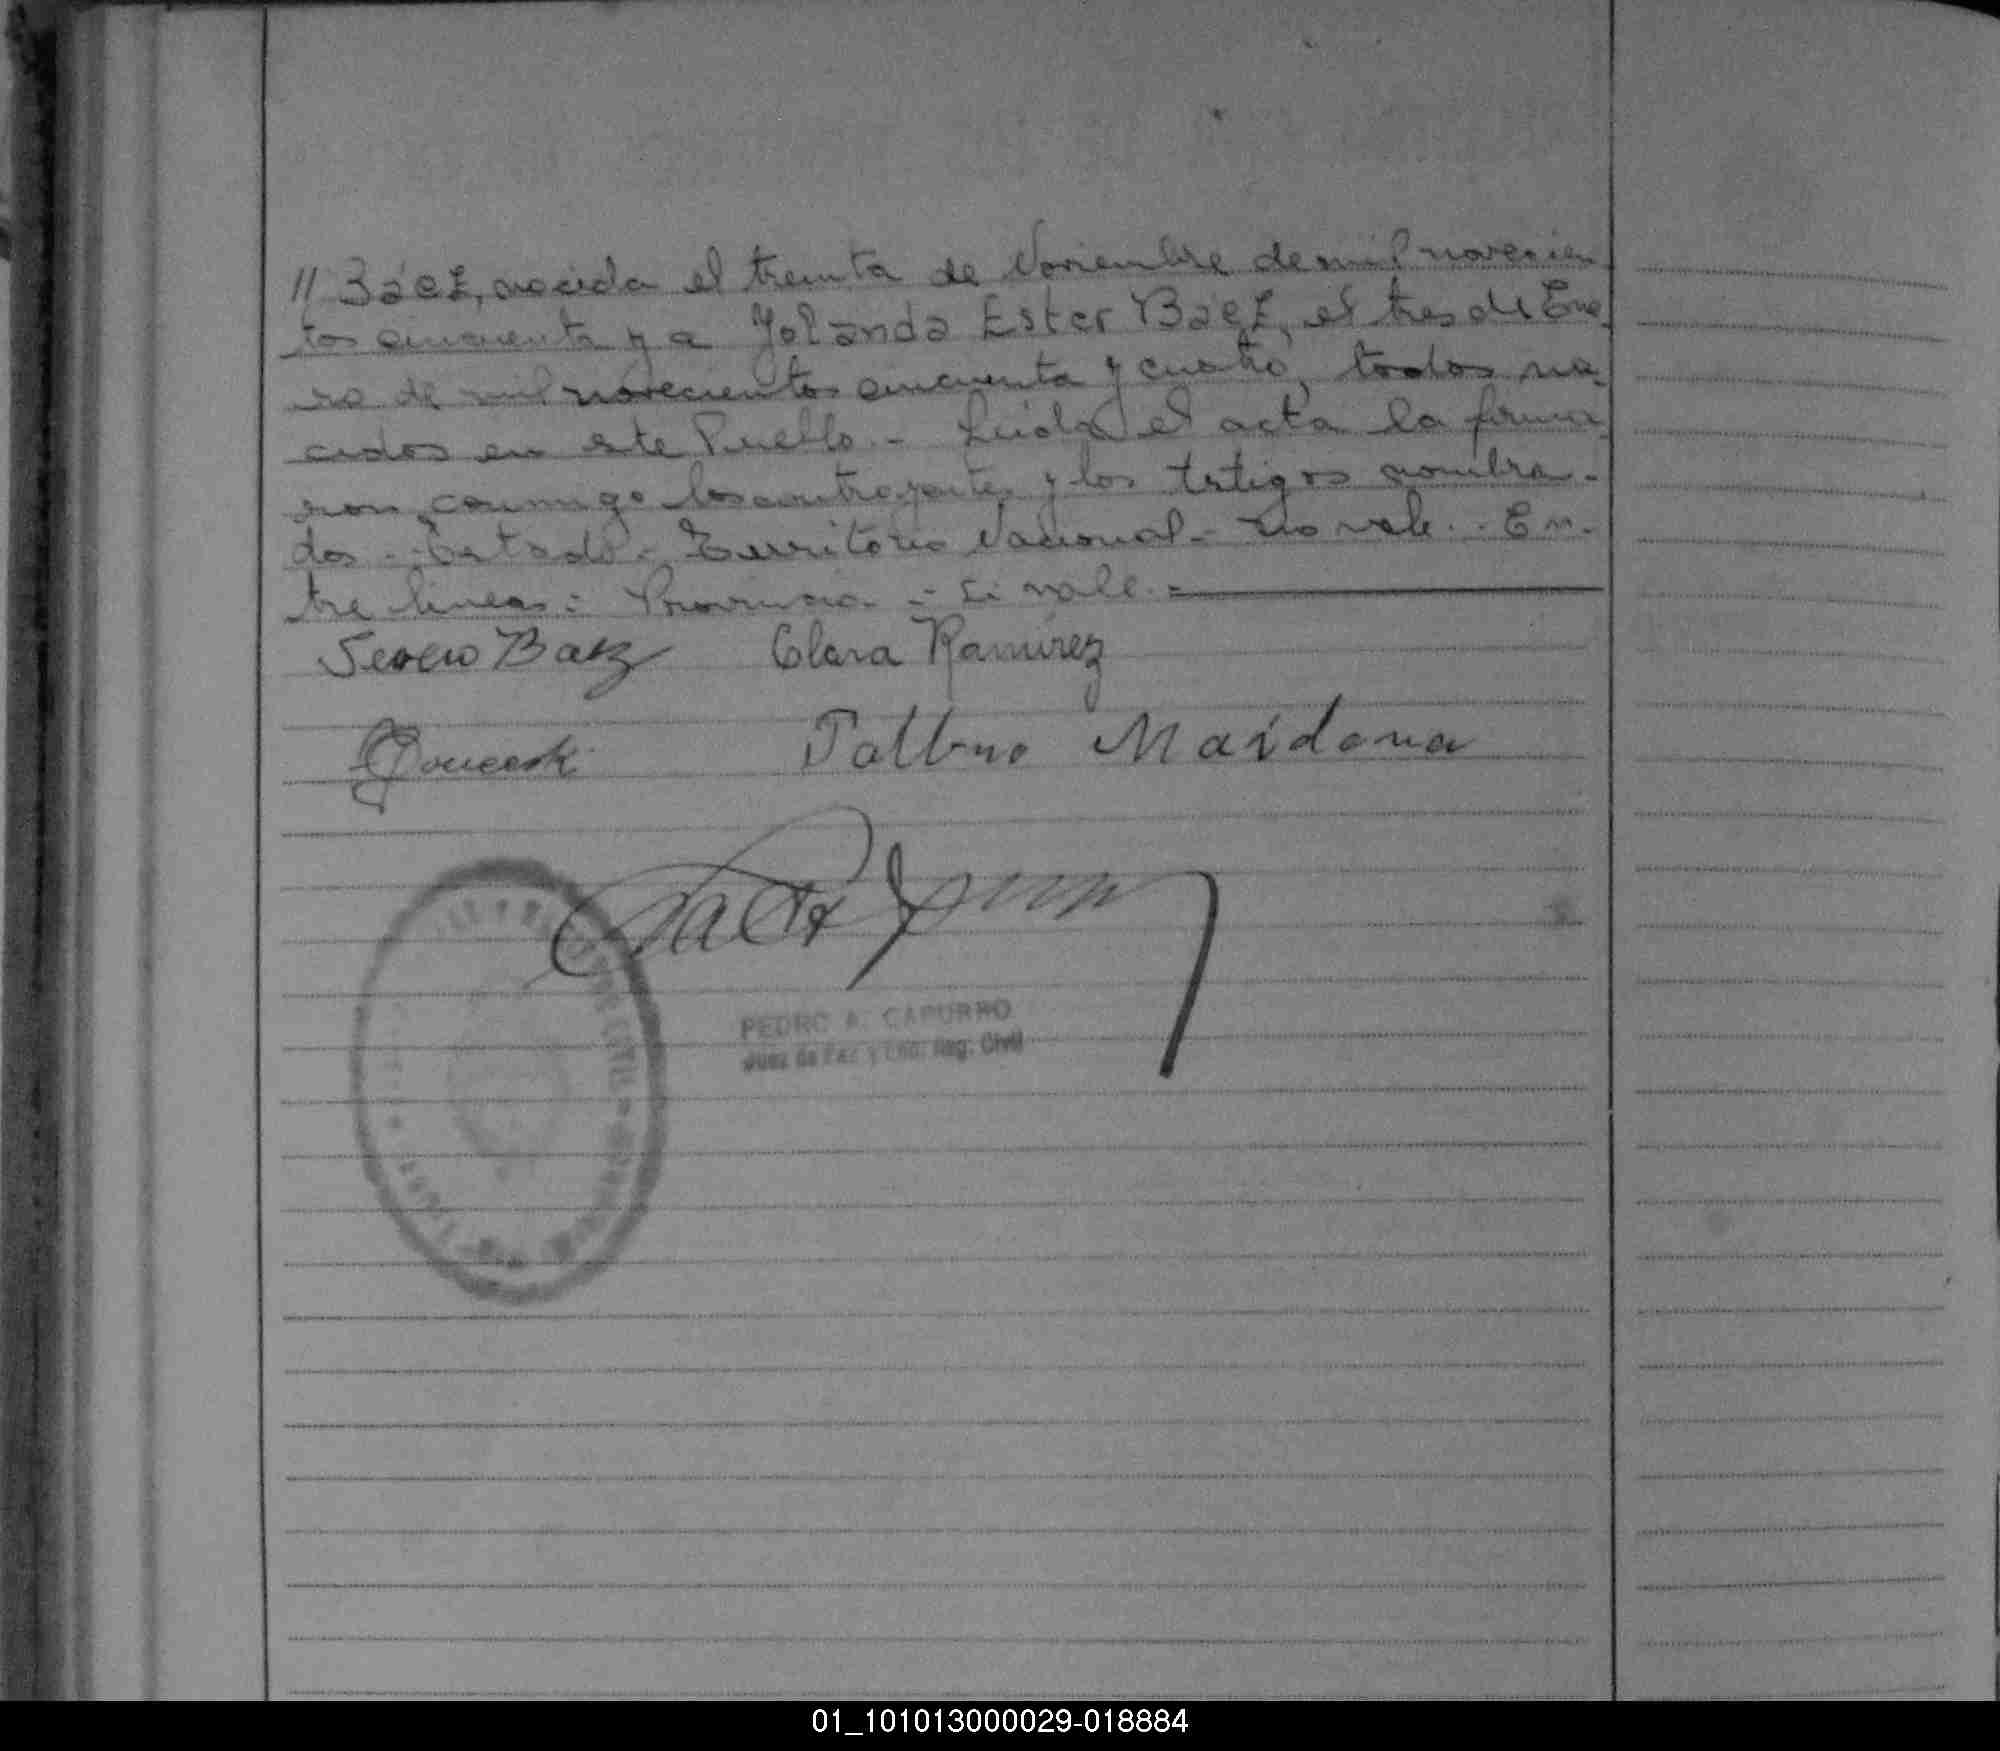 // Báez, nacida el treinta de Noviembre de mil novecien
tos cincuenta y a Yolanda Ester Báez, el tres de Ene
ro de mil novecientos cincuenta y cuatro, todos na-
cidos en este Pueblo.- Leída el acta la firma
ron conmigo los contrayentes y los testigos nombra-
dos.- Testado.- Territorio Nacional.- no vale.- En-
tre lineas:- Provincia.- Si vale.-
Severo Baez Clara Ramírez
Maidana
PEDRO A. CAPURRO
Juez de Paz y Enc. Reg. Civil
01_101013000029-018884